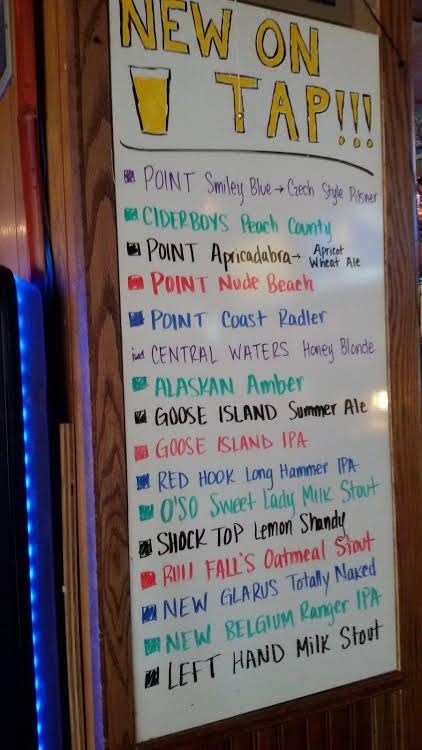 NEW ON
TAP!!!
POINT Smiley Blue → Czech Style Pilsner
CIDERBOYS Peach County
POINT Apricadabra → Apricot
Wheat Ale
POINT Nude Beach
POINT Coast Radler
CENTRAL WATERS Honey Blonde
ALASKAN Amber
GOOSE ISLAND Summer Ale
GOOSE ISLAND IPA
RED HOOK Long Hammer IPA
O'SO Sweet Lady Milk Stout
SHOCK TOP Lemon Shandy
RUII FALL'S Oatmeal Stout
NEW GLARUS Totally Naked
NEW BELGIUM Ranger IPA
LEFT HAND Milk Stout